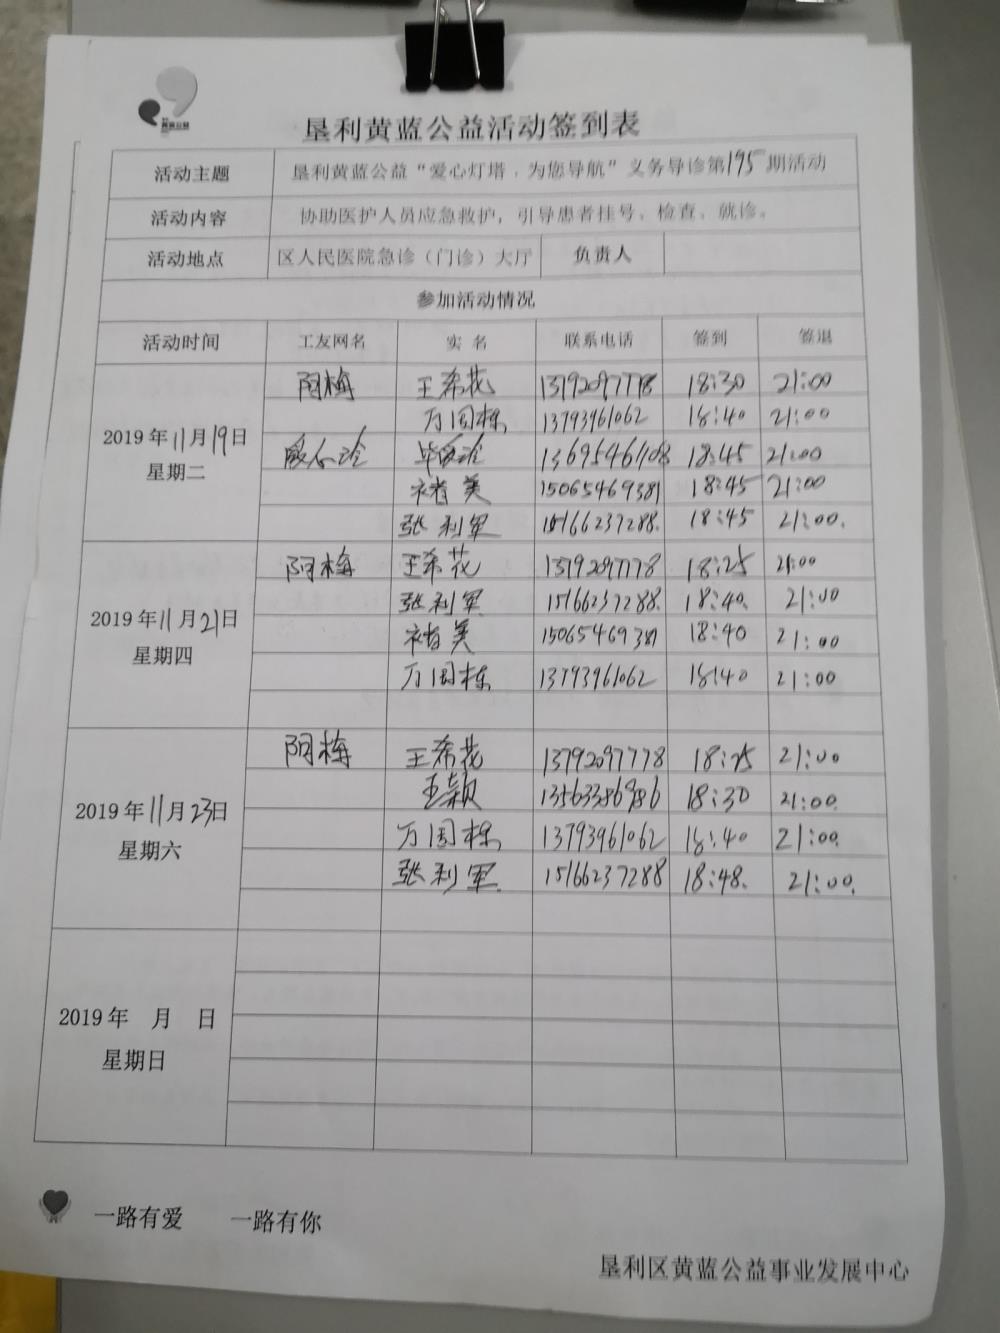 黄蓝公益
垦利黄蓝公益活动签到表
活动主题 垦利黄蓝公益“爱心灯塔．为您导航”义务导诊第195期活动
活动内容 协助医护人员应急救护，引导患者挂号、检查、就诊。
活动地点 区人民医院急诊（门诊）大厅 负责人
参加活动情况
活动时间 工友网名 实名 联系电话 签到 签退
2019年11月19日 星期二
阿梅 王希花 13792097778 18:30 21:00
万国栋 13793961062 18:40 21:00
18:45 21:00
褚美 15065469381 18:45 21:00
张利军 15166237288. 18:45 21:00.
2019年11月21日 星期四
阿梅 王希花 13792097778 18:25 21:00
张利军 15166237288. 18:40. 21:00
褚美 15065469381 18:40 21:00
万国栋 13793961062 18:40 21:00
2019年11月23日 星期六
阿梅 王希花 13792097778 18:25 21:00
王颖 13563386986 18:30 21:00.
万国栋 13793961062 18:40 21:00.
张利军 15166237288 18:48. 21:00.
2019年 月 日
星期日
一路有爱 一路有你
垦利区黄蓝公益事业发展中心